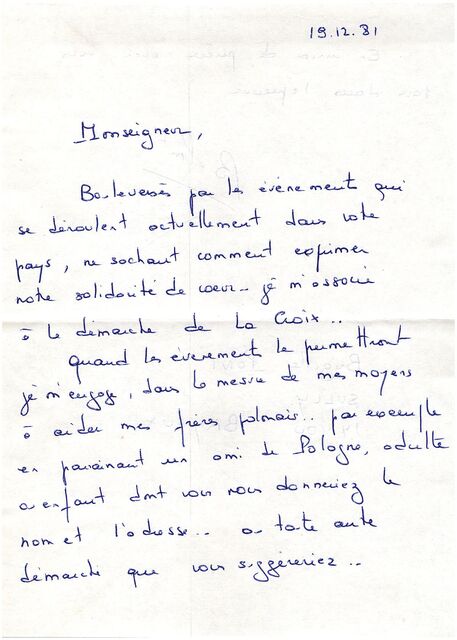 19.12.81
Monseigneur,
Bouleversés par les événements qui
se déroulent actuellement dans votre
pays, ne sachant comment exprimer
notre solidarité de cœur.. je m'associe
à la démarche de La Croix..
Quand les événements le permettront
je m'engage, dans la mesure de mes moyens
à aider mes frères polonais.. par exemple
en parrainant un ami de Pologne, adulte
ou enfant dont vous nous donneriez le
nom et l'adresse.. ou toute autre
démarche que vous suggéreriez..